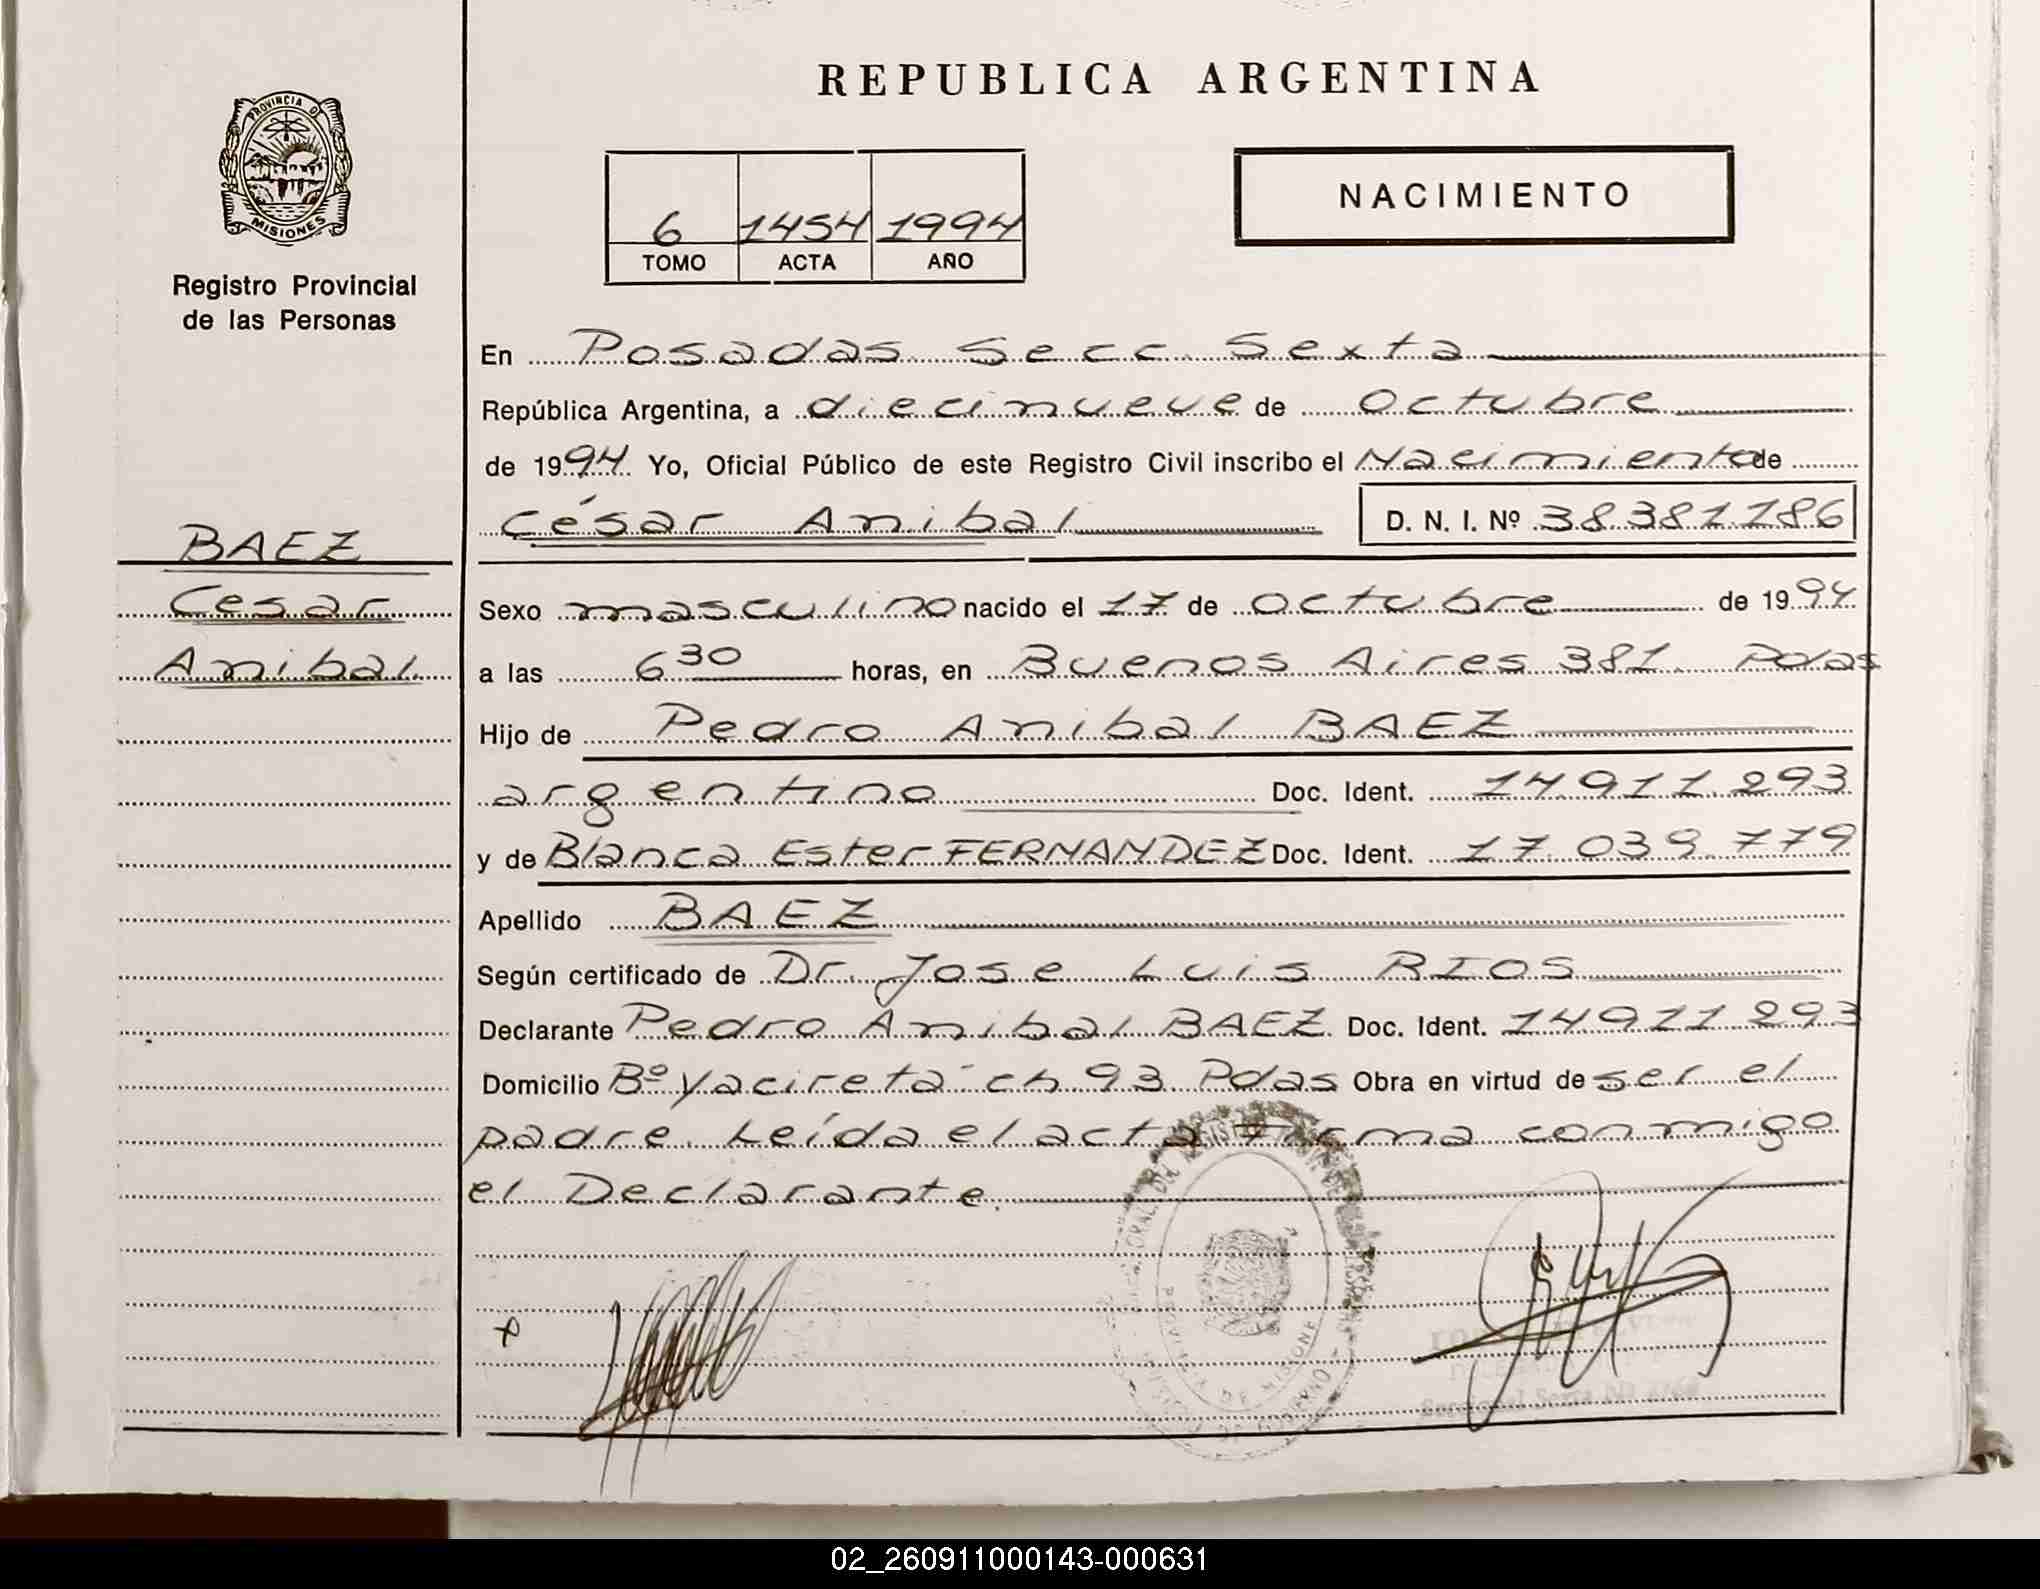 REPUBLICA ARGENTINA
PROVINCIA D
MISIONES
Registro Provincial
de las Personas
6 1454 1994
TOMO ACTA AÑO
NACIMIENTO
En Posadas Secc. Sexta
República Argentina, a diecinueve de Octubre
de 1994 Yo, Oficial Público de este Registro Civil inscribo el Nacimiento de
César Anibal D. N. I. Nº 38.381.186
BAEZ
Cesar
Anibal.
Sexo masculino nacido el 17 de octubre de 1994
a las 6 30 horas, en Buenos Aires 381. Pdas
Hijo de Pedro Anibal BAEZ
argentino Doc. Ident. 14.911.293
y de Blanca Ester FERNANDEZ Doc. Ident. 17.039.779
Apellido BAEZ
Según certificado de Dr. Jose Luis RIOS
Declarante Pedro Anibal BAEZ. Doc. Ident. 14911293
Domicilio Bº Yacireta ch 93 Pdas Obra en virtud de ser el
padre. Leída el acta firma conmigo
el Declarante.
02_260911000143-000631